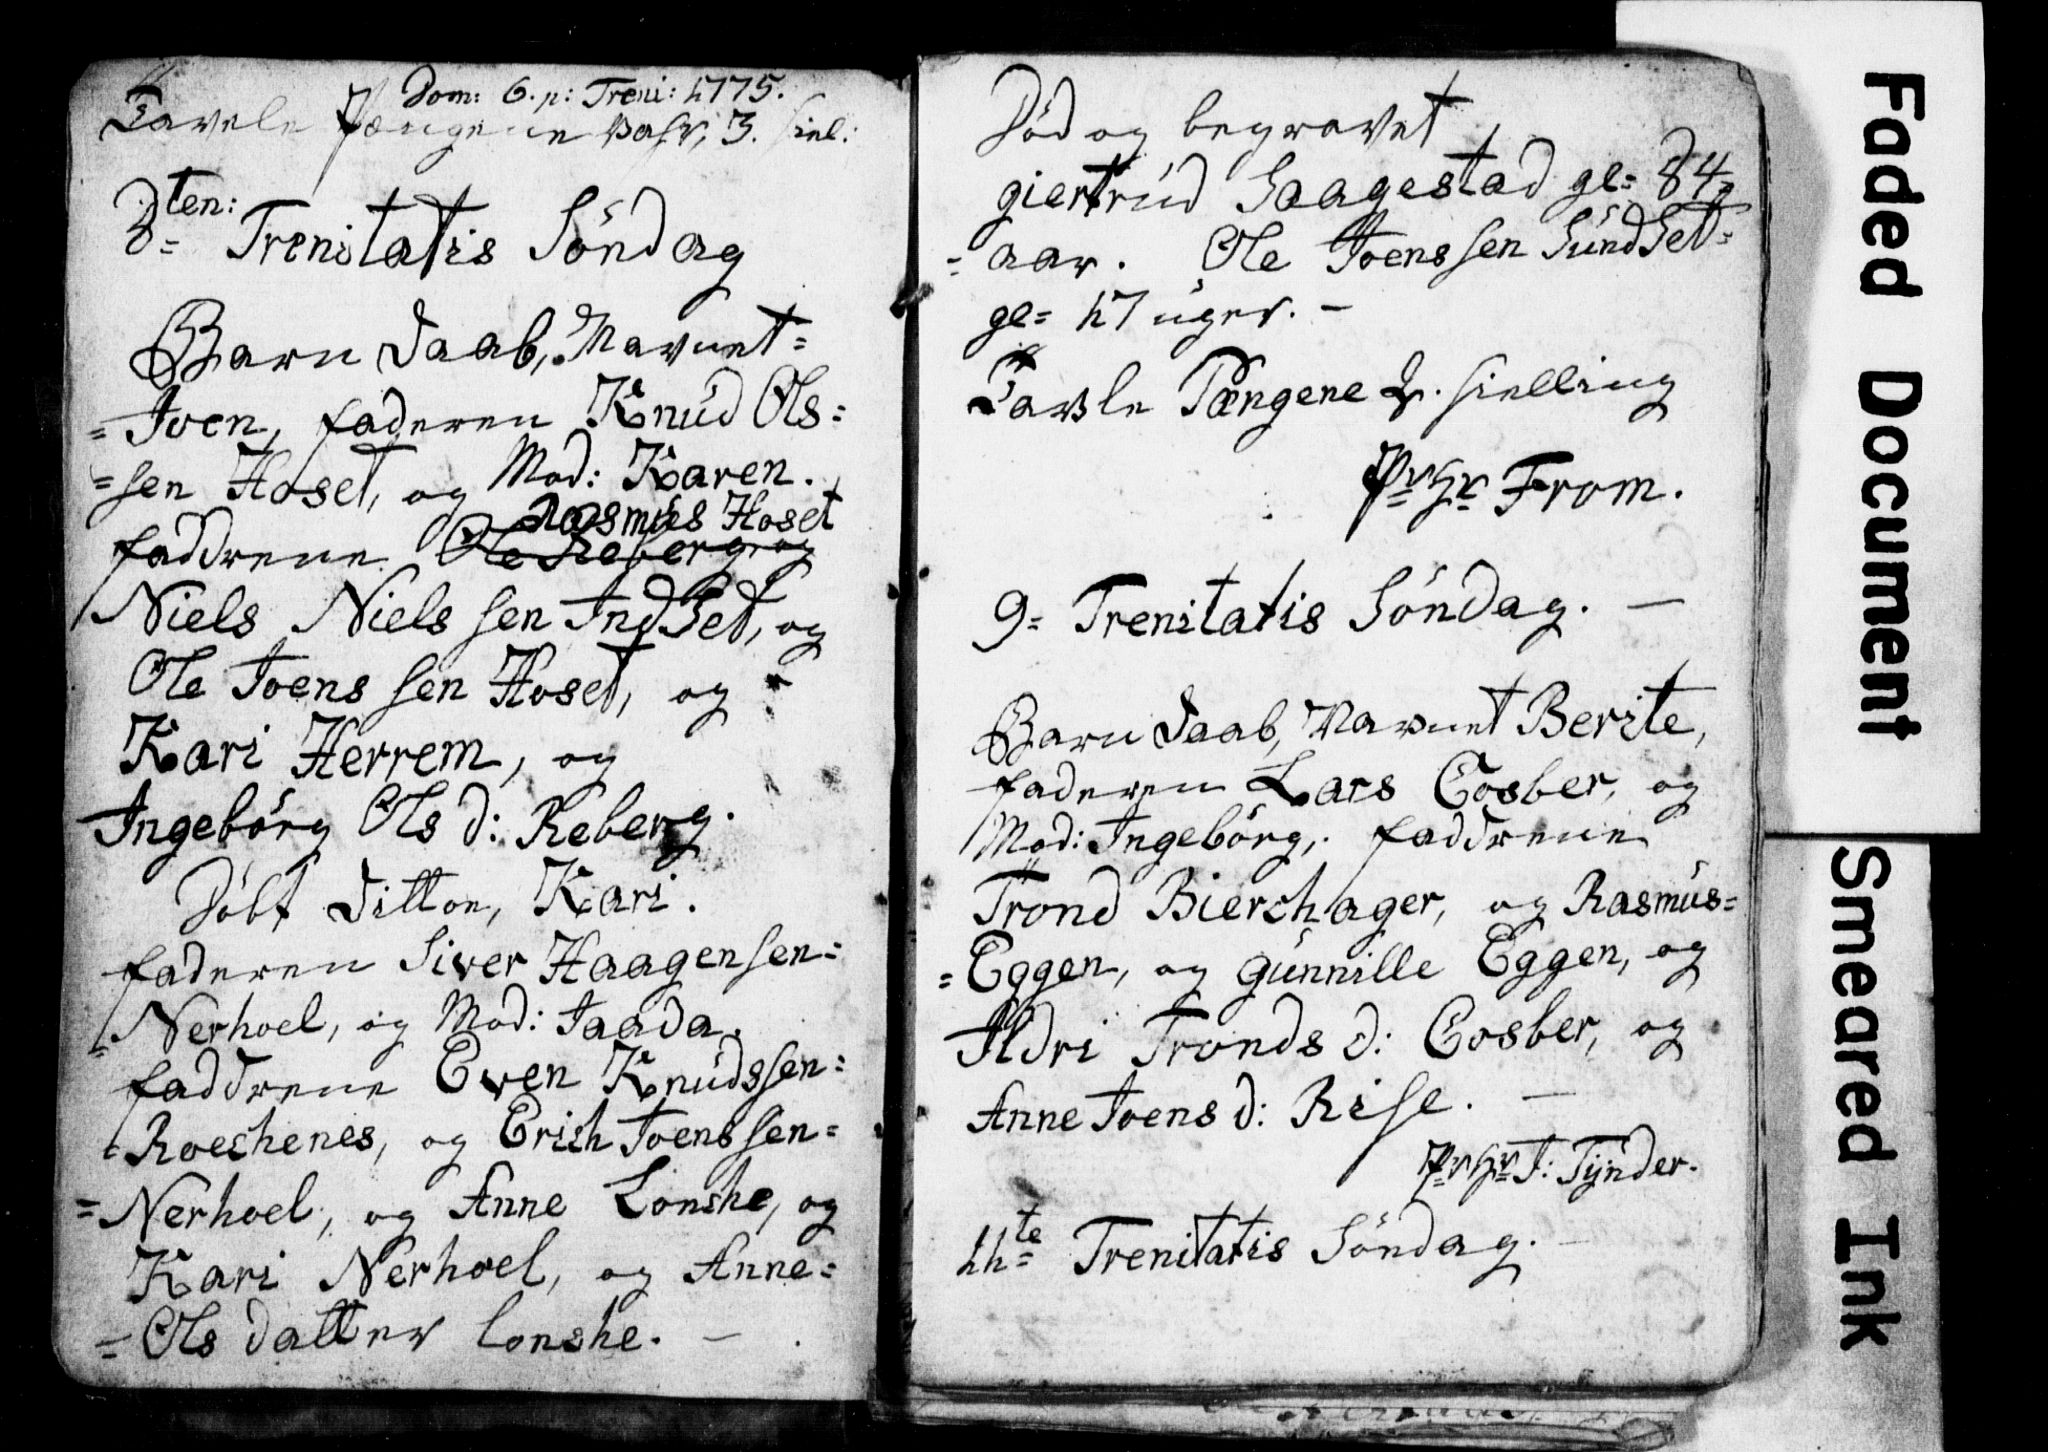 Dom: 6. p: Treni: 1775.
Tavele Pængene vahr, 3. siel:
8ten: Trenitatis Söndag
Barn Daab, Navnet=
=Joen, faderen Knud Ols=
=sen Hoset, og Mod: Karen.
Rasmus Hoset
faddrene Ole Reberg, og
Niels Nielssen IndSet, og
Ole Joenssen Hoset, og
Kari Herrem, og
Ingebörg Olsd: Reberg.
Döbt Ditton, Kari.
faderen Siver Haagensen=
=Nerhoel, og Mod: Jaada.
faddrene Even Knudssen=
Roeshenes, og Erich Joenssen=
=Nerhoel, og Anne Lonshe, og
Kari Nerhoel, og Anne=
=Olsdatter lonshe. –
Död og begravet
giertrud Saagestad gl= 84=
=aar. Ole Joenssen SundSet=
gl= 17 uger. –
Tavle Pængene 2. sielling
Pr Hr From.
9= Trenitatis Söndag. –
Barn Daab, Navnet Berite,
faderen Lars Cosber, og
Mod: Ingebörg, faddrene
Trond Bierchager, og Rasmus=
=Eggen, og gunnille Eggen, og
Ildri Tronds d: Cosber, og
Anne Joens d: Rise. –
Pr Hr J: Tÿnder.
11te= Trenitatis Söndag. –
Faded Document
Smeared Ink